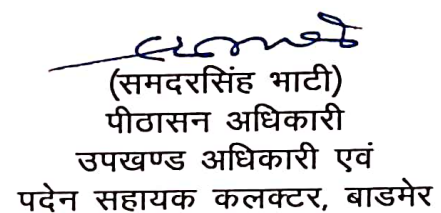 (समदरसिंह भाटी)
पीठासन अधिकारी
उपखण्ड अधिकारी एवं
पदेन सहायक कलक्टर, बाडमेर